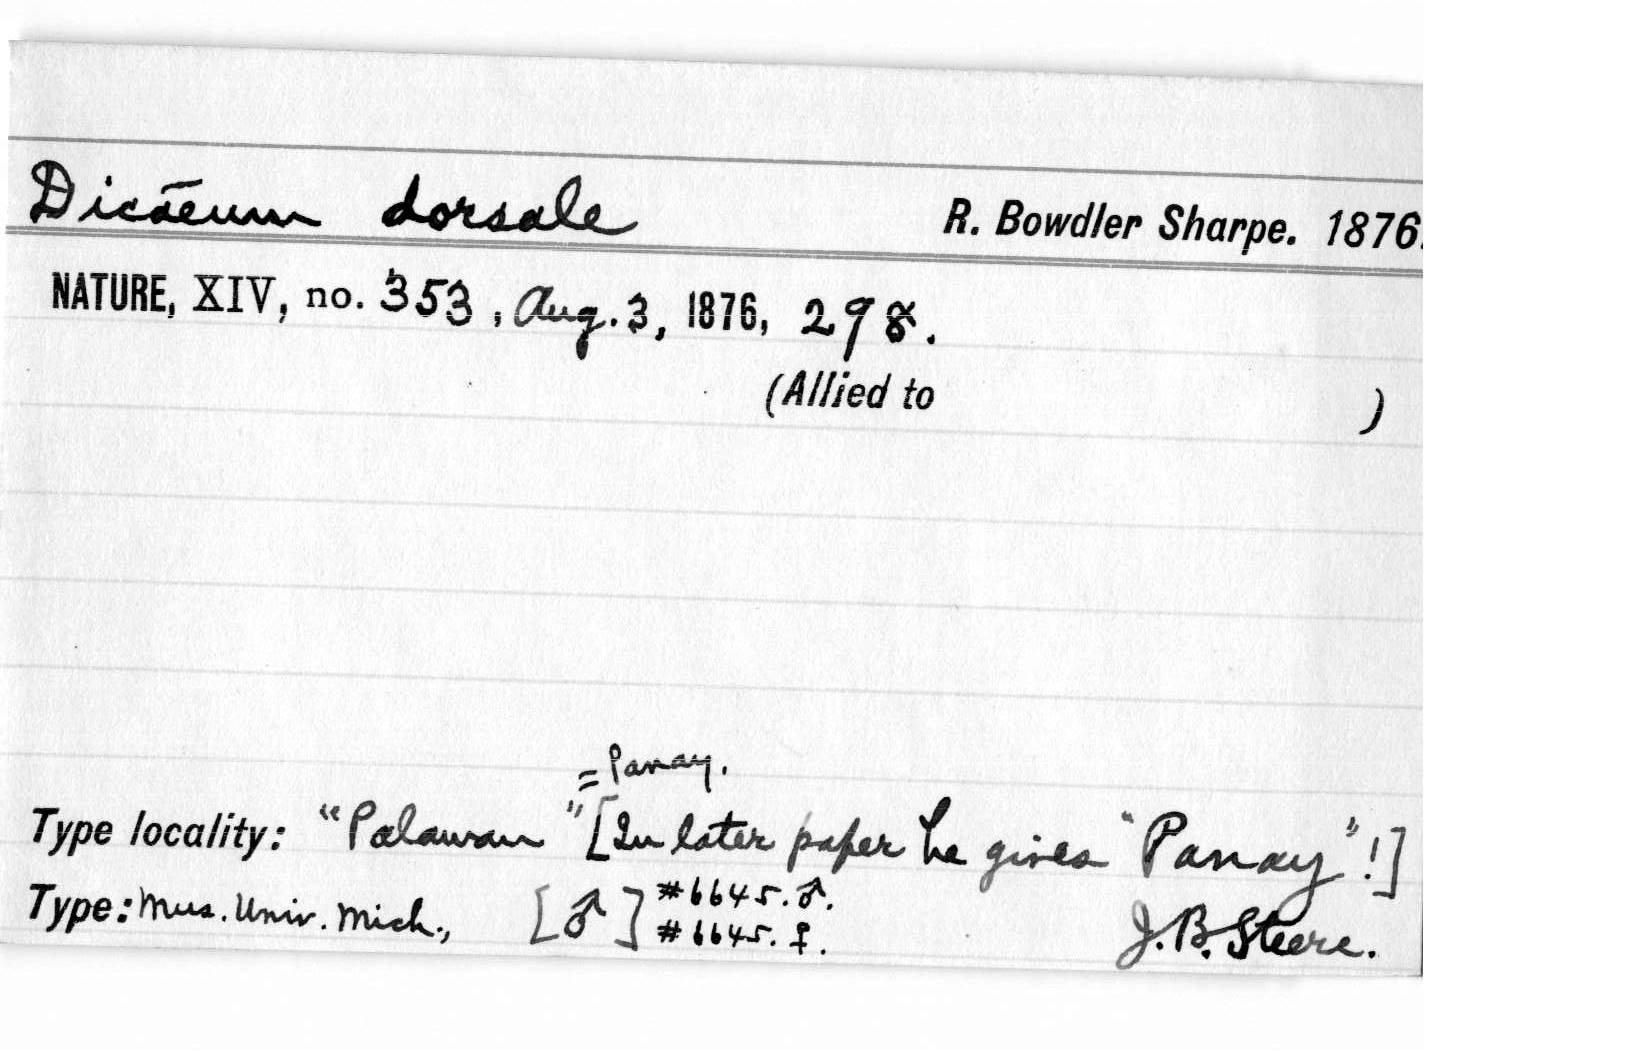 Dicaeum dorsale R. Bowdler Sharpe. 1876.
NATURE, XIV, no. 353, Aug. 3, 1876, 298.
(Allied to )
= Panay.
Type locality: "Palawan" [In later paper he gives "Panay"!]
Type: Mus. Univ. Mich., [♂] #6645. ♂.
#6645. ♀. J. B. Steere.